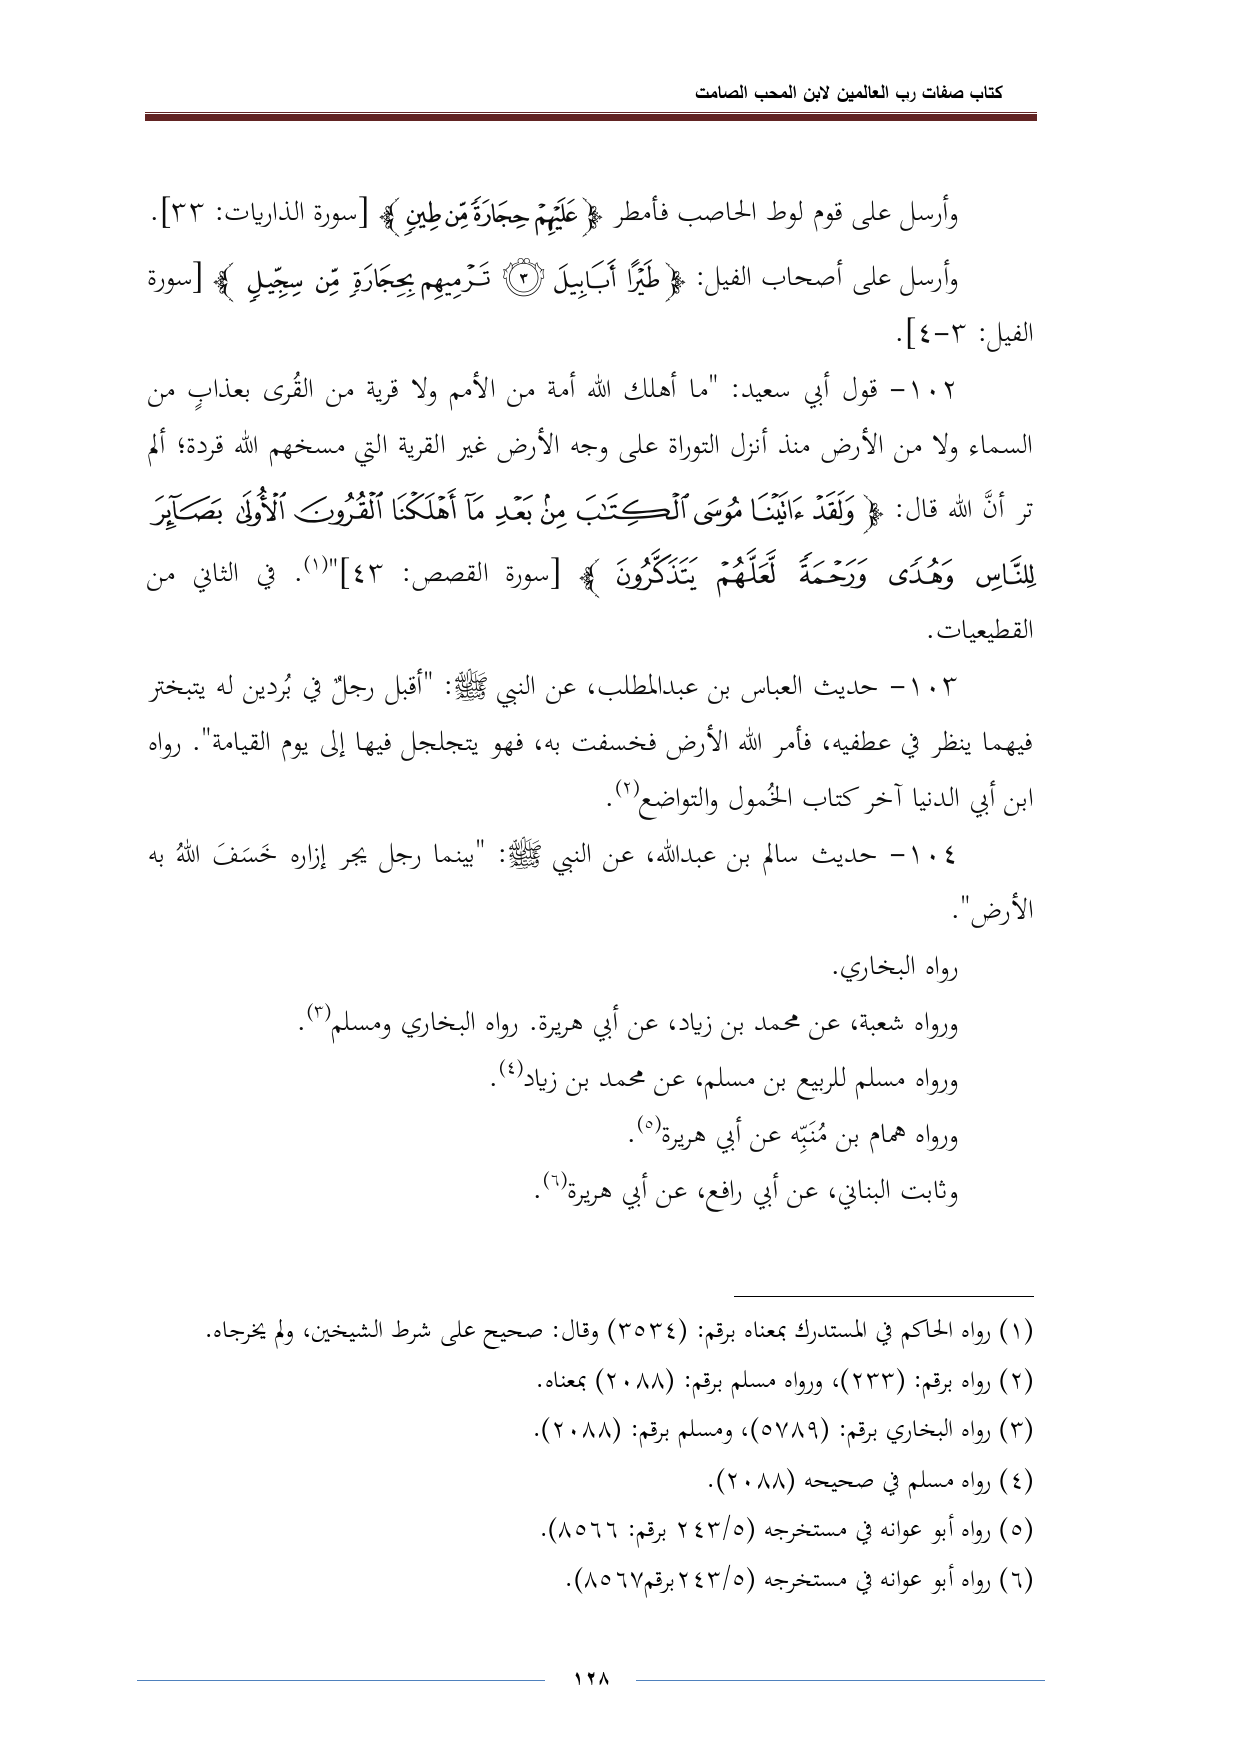 كتاب صفات رب العالمين لابن المحب الصامت
وأرسل على قوم لوط الحاصب فأمطر ﴿ عَلَيْهِمْ حِجَارَةً مِّن طِينٍ ﴾ [سورة الذاريات: ٣٣].
وأرسل على أصحاب الفيل: ﴿ طَيْرًا أَبَابِيلَ ٣ تَرْمِيهِم بِحِجَارَةٍ مِّن سِجِّيلٍ ﴾ [سورة
الفيل: ٣-٤].
١٠٢- قول أبي سعيد: "ما أهلك الله أمة من الأمم ولا قرية من القُرى بعذابٍ من
السماء ولا من الأرض منذ أنزل التوراة على وجه الأرض غير القرية التي مسخهم الله قردة؛ ألم
تر أنَّ الله قال: ﴿ وَلَقَدْ ءَاتَيْنَا مُوسَى ٱلْكِتَٰبَ مِنۢ بَعْدِ مَآ أَهْلَكْنَا ٱلْقُرُونَ ٱلْأُولَىٰ بَصَآئِرَ
لِلنَّاسِ وَهُدًى وَرَحْمَةً لَّعَلَّهُمْ يَتَذَكَّرُونَ ﴾ [سورة القصص: ٤٣]"(١). في الثاني من
القطيعيات.
١٠٣- حديث العباس بن عبدالمطلب، عن النبي ﷺ: "أقبل رجلٌ في بُردين له يتبختر
فيهما ينظر في عطفيه، فأمر الله الأرض فخسفت به، فهو يتجلجل فيها إلى يوم القيامة". رواه
ابن أبي الدنيا آخر كتاب الخُمول والتواضع(٢).
١٠٤- حديث سالم بن عبدالله، عن النبي ﷺ: "بينما رجل يجر إزاره خَسَفَ اللهُ به
الأرض".
رواه البخاري.
ورواه شعبة، عن محمد بن زياد، عن أبي هريرة. رواه البخاري ومسلم(٣).
ورواه مسلم للربيع بن مسلم، عن محمد بن زياد(٤).
ورواه همام بن مُنَبِّه عن أبي هريرة(٥).
وثابت البناني، عن أبي رافع، عن أبي هريرة(٦).
(١) رواه الحاكم في المستدرك بمعناه برقم: (٣٥٣٤) وقال: صحيح على شرط الشيخين، ولم يخرجاه.
(٢) رواه برقم: (٢٣٣)، ورواه مسلم برقم: (٢٠٨٨) بمعناه.
(٣) رواه البخاري برقم: (٥٧٨٩)، ومسلم برقم: (٢٠٨٨).
(٤) رواه مسلم في صحيحه (٢٠٨٨).
(٥) رواه أبو عوانه في مستخرجه (٢٤٣/٥ برقم: ٨٥٦٦).
(٦) رواه أبو عوانه في مستخرجه (٢٤٣/٥برقم٨٥٦٧).
١٢٨